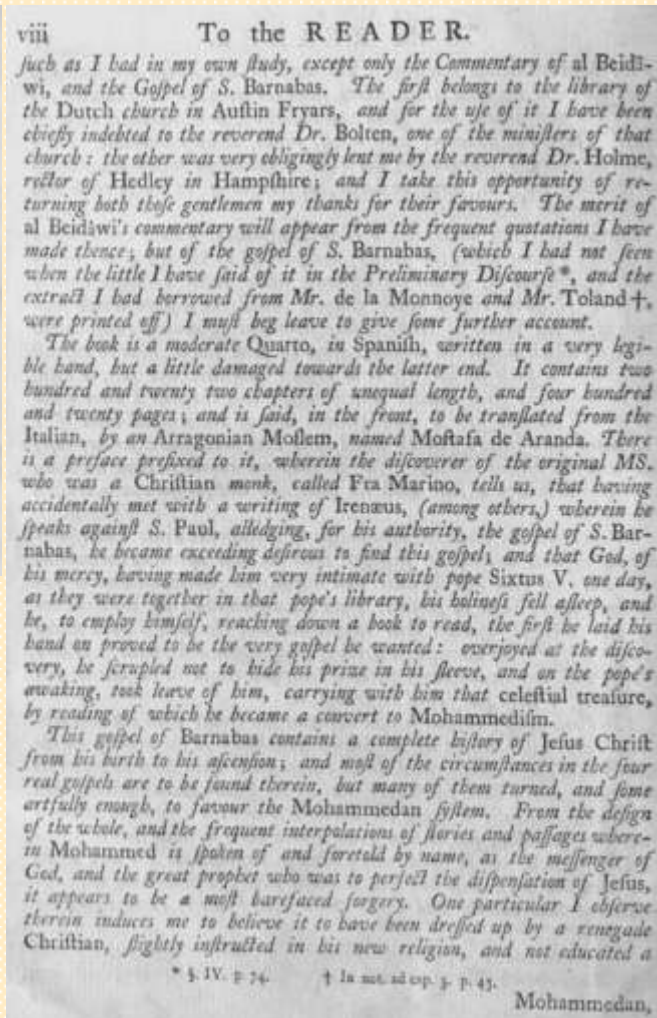 viii To the READER.
ſuch as I had in my own ſtudy, except only the Commentary of al Beidâ-
wi, and the Goſpel of S. Barnabas. The firſt belongs to the library of
the Dutch church in Auſtin Fryars, and for the uſe of it I have been
chiefly indebted to the reverend Dr. Bolten, one of the miniſters of that
church: the other was very obligingly lent me by the reverend Dr. Holme,
rector of Hedley in Hampſhire; and I take this opportunity of re-
turning both thoſe gentlemen my thanks for their favours. The merit of
al Beidâwi's commentary will appear from the frequent quotations I have
made thence; but of the goſpel of S. Barnabas, (which I had not ſeen
when the little I have ſaid of it in the Preliminary Diſcourſe*, and the
extract I had borrowed from Mr. de la Monnoye and Mr. Toland†,
were printed off) I muſt beg leave to give ſome further account.
The book is a moderate Quarto, in Spaniſh, written in a very legi-
ble hand, but a little damaged towards the latter end. It contains two
hundred and twenty two chapters of unequal length, and four hundred
and twenty pages; and is ſaid, in the front, to be tranſlated from the
Italian, by an Arragonian Moſlem, named Moſtafa de Aranda. There
is a preface prefixed to it, wherein the diſcoverer of the original MS.
who was a Chriſtian monk, called Fra Marino, tells us, that having
accidentally met with a writing of Irenæus, (among others,) wherein he
ſpeaks againſt S. Paul, alledging, for his authority, the goſpel of S. Bar-
nabas, he became exceeding deſirous to find this goſpel; and that God, of
his mercy, having made him very intimate with pope Sixtus V. one day,
as they were together in that pope's library, his holineſs fell aſleep, and
he, to employ himſelf, reaching down a book to read, the firſt he laid his
hand on proved to be the very goſpel he wanted: overjoyed at the diſco-
very, he ſcrupled not to hide his prize in his ſleeve, and on the pope's
awaking, took leave of him, carrying with him that celeſtial treaſure,
by reading of which he became a convert to Mohammediſm.
This goſpel of Barnabas contains a complete hiſtory of Jeſus Chriſt
from his birth to his aſcenſion; and moſt of the circumſtances in the four
real goſpels are to be found therein, but many of them turned, and ſome
artfully enough, to favour the Mohammedan ſyſtem. From the deſign
of the whole, and the frequent interpolations of ſtories and paſſages where-
in Mohammed is ſpoken of and foretold by name, as the meſſenger of
God, and the great prophet who was to perfect the diſpenſation of Jeſus,
it appears to be a moſt barefaced forgery. One particular I obſerve
therein induces me to believe it to have been dreſſed up by a renegade
Chriſtian, ſlightly inſtructed in his new religion, and not educated a
* §. IV. p. 74. † In not. ad cap. 3. p. 43.
Mohammedan,